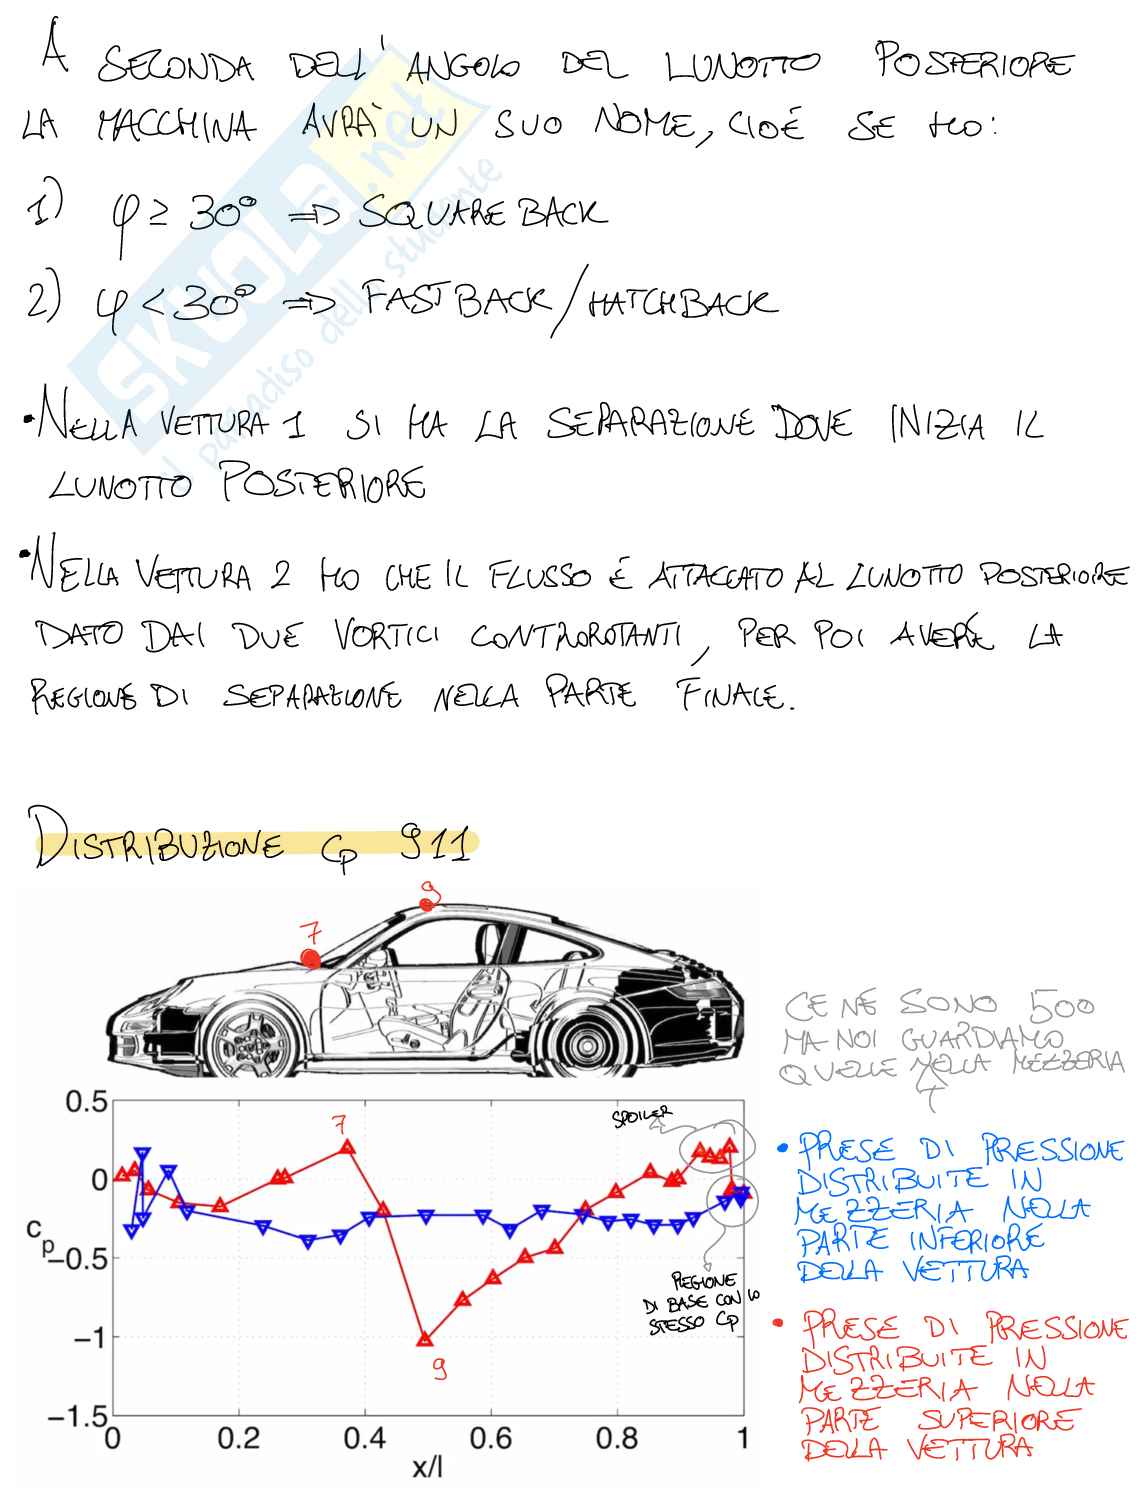 A SECONDA DELL'ANGOLO DEL LUNOTTO POSTERIORE
LA MACCHINA AVRÀ UN SUO NOME, CIOÉ SE HO:
1) φ ≥ 30° ⇒ SQUARE BACK
2) φ < 30° ⇒ FAST BACK/HATCHBACK
• NELLA VETTURA 1 SI HA LA SEPARAZIONE DOVE INIZIA IL
LUNOTTO POSTERIORE
• NELLA VETTURA 2 HO CHE IL FLUSSO É ATTACCATO AL LUNOTTO POSTERIORE
DATO DAI DUE VORTICI CONTROROTANTI, PER POI AVERE LA
REGIONE DI SEPARAZIONE NELLA PARTE FINALE.
SKUOLA.net
il paradiso dello studente
DISTRIBUZIONE Cp 911
9
7
CE NE SONO 500
MA NOI GUARDIAMO
QUELLE NELLA MEZZERIA
0.5
0
-0.5
-1
-1.5
cp
0 0.2 0.4 0.6 0.8 1
x/l
7
9
SPOILER
REGIONE
DI BASE CON LO
STESSO Cp
• PRESE DI PRESSIONE
DISTRIBUITE IN
MEZZERIA NELLA
PARTE INFERIORE
DELLA VETTURA
• PRESE DI PRESSIONE
DISTRIBUITE IN
MEZZERIA NELLA
PARTE SUPERIORE
DELLA VETTURA